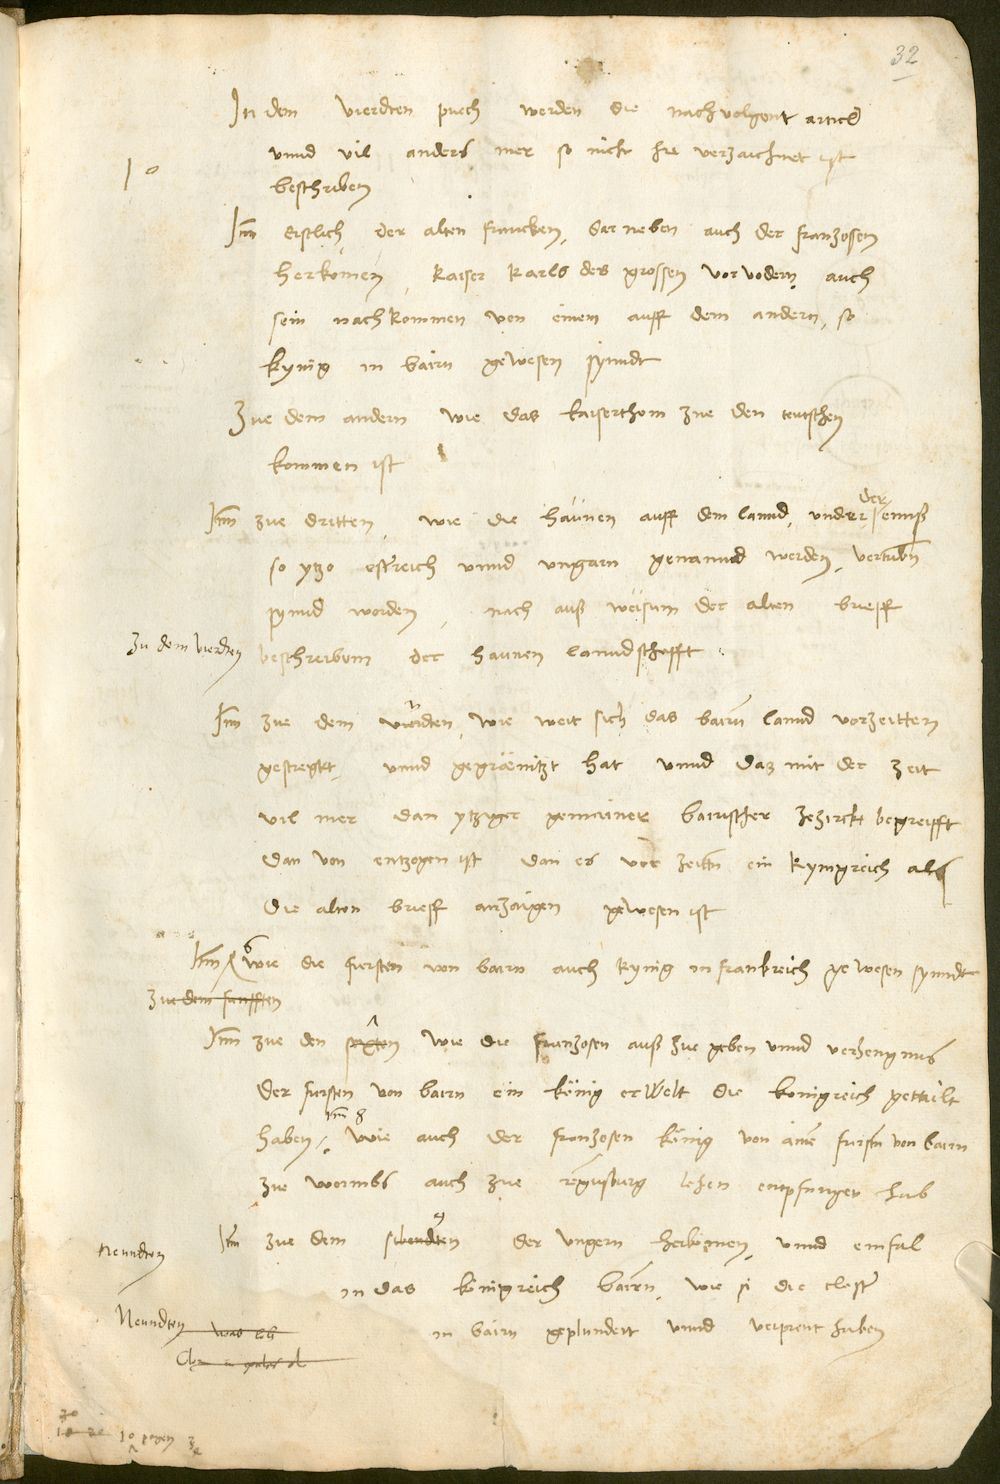 32
In dem vierdten puech werden die nachvolgent articl
unnd vil anders mer so nicht hie verzaichnet ist
10
beschriben
Itm Erstlich der alten francken, darneben auch der franzosen
herkomen, kaiser karls des grossen vorvodern auch
sein nachkommen von einem auff dem andern, so
kynig in bairn gewesen synndt
Zue dem andern wie das kaiserthom zue den teutschen
kommen ist
Itm zue dritten, wie die haunen auff dem lannd, under der enniß
so ytzo estreich unnd ungarn genannd werden, vertribn
synnd worden, nach auß weisum der alten brieff
Zu dem vierdten
beschreibum der haunen lanndschafft
Itm zue dem vierdten, wie weit sich das bairn lannd vorzeitten
gestregkt, unnd gegräenitzt hat unnd das mit der zeit
vil mer dan ytziger gemainer bairischer zezirckt begreifft
dar von entzogen ist dan es vor zeittn ein kyngreich als
die alten brieff anzaigen gewesen ist
Itm 6 wie die fursten von bairn auch kynig in frankreich gewesen synndt
zue dem funfften
Itm zue den sexten wie die franzosen auß zue geben unnd verhengnus
der fursten von bairn ein könig erwelt die konigreich gettailt
Itm 8
haben, wie auch der franzosen könig von aime fursten von bairn
zue wormbs auch zue regnsburg lehen entpfangen hab
Itm zue dem sibendten der ungern herkomen, unnd einfal
neundten
in das königreich bairn, wie si die closter
Neundten was
in bairn geplundert unnd verprent haben
10 pogen